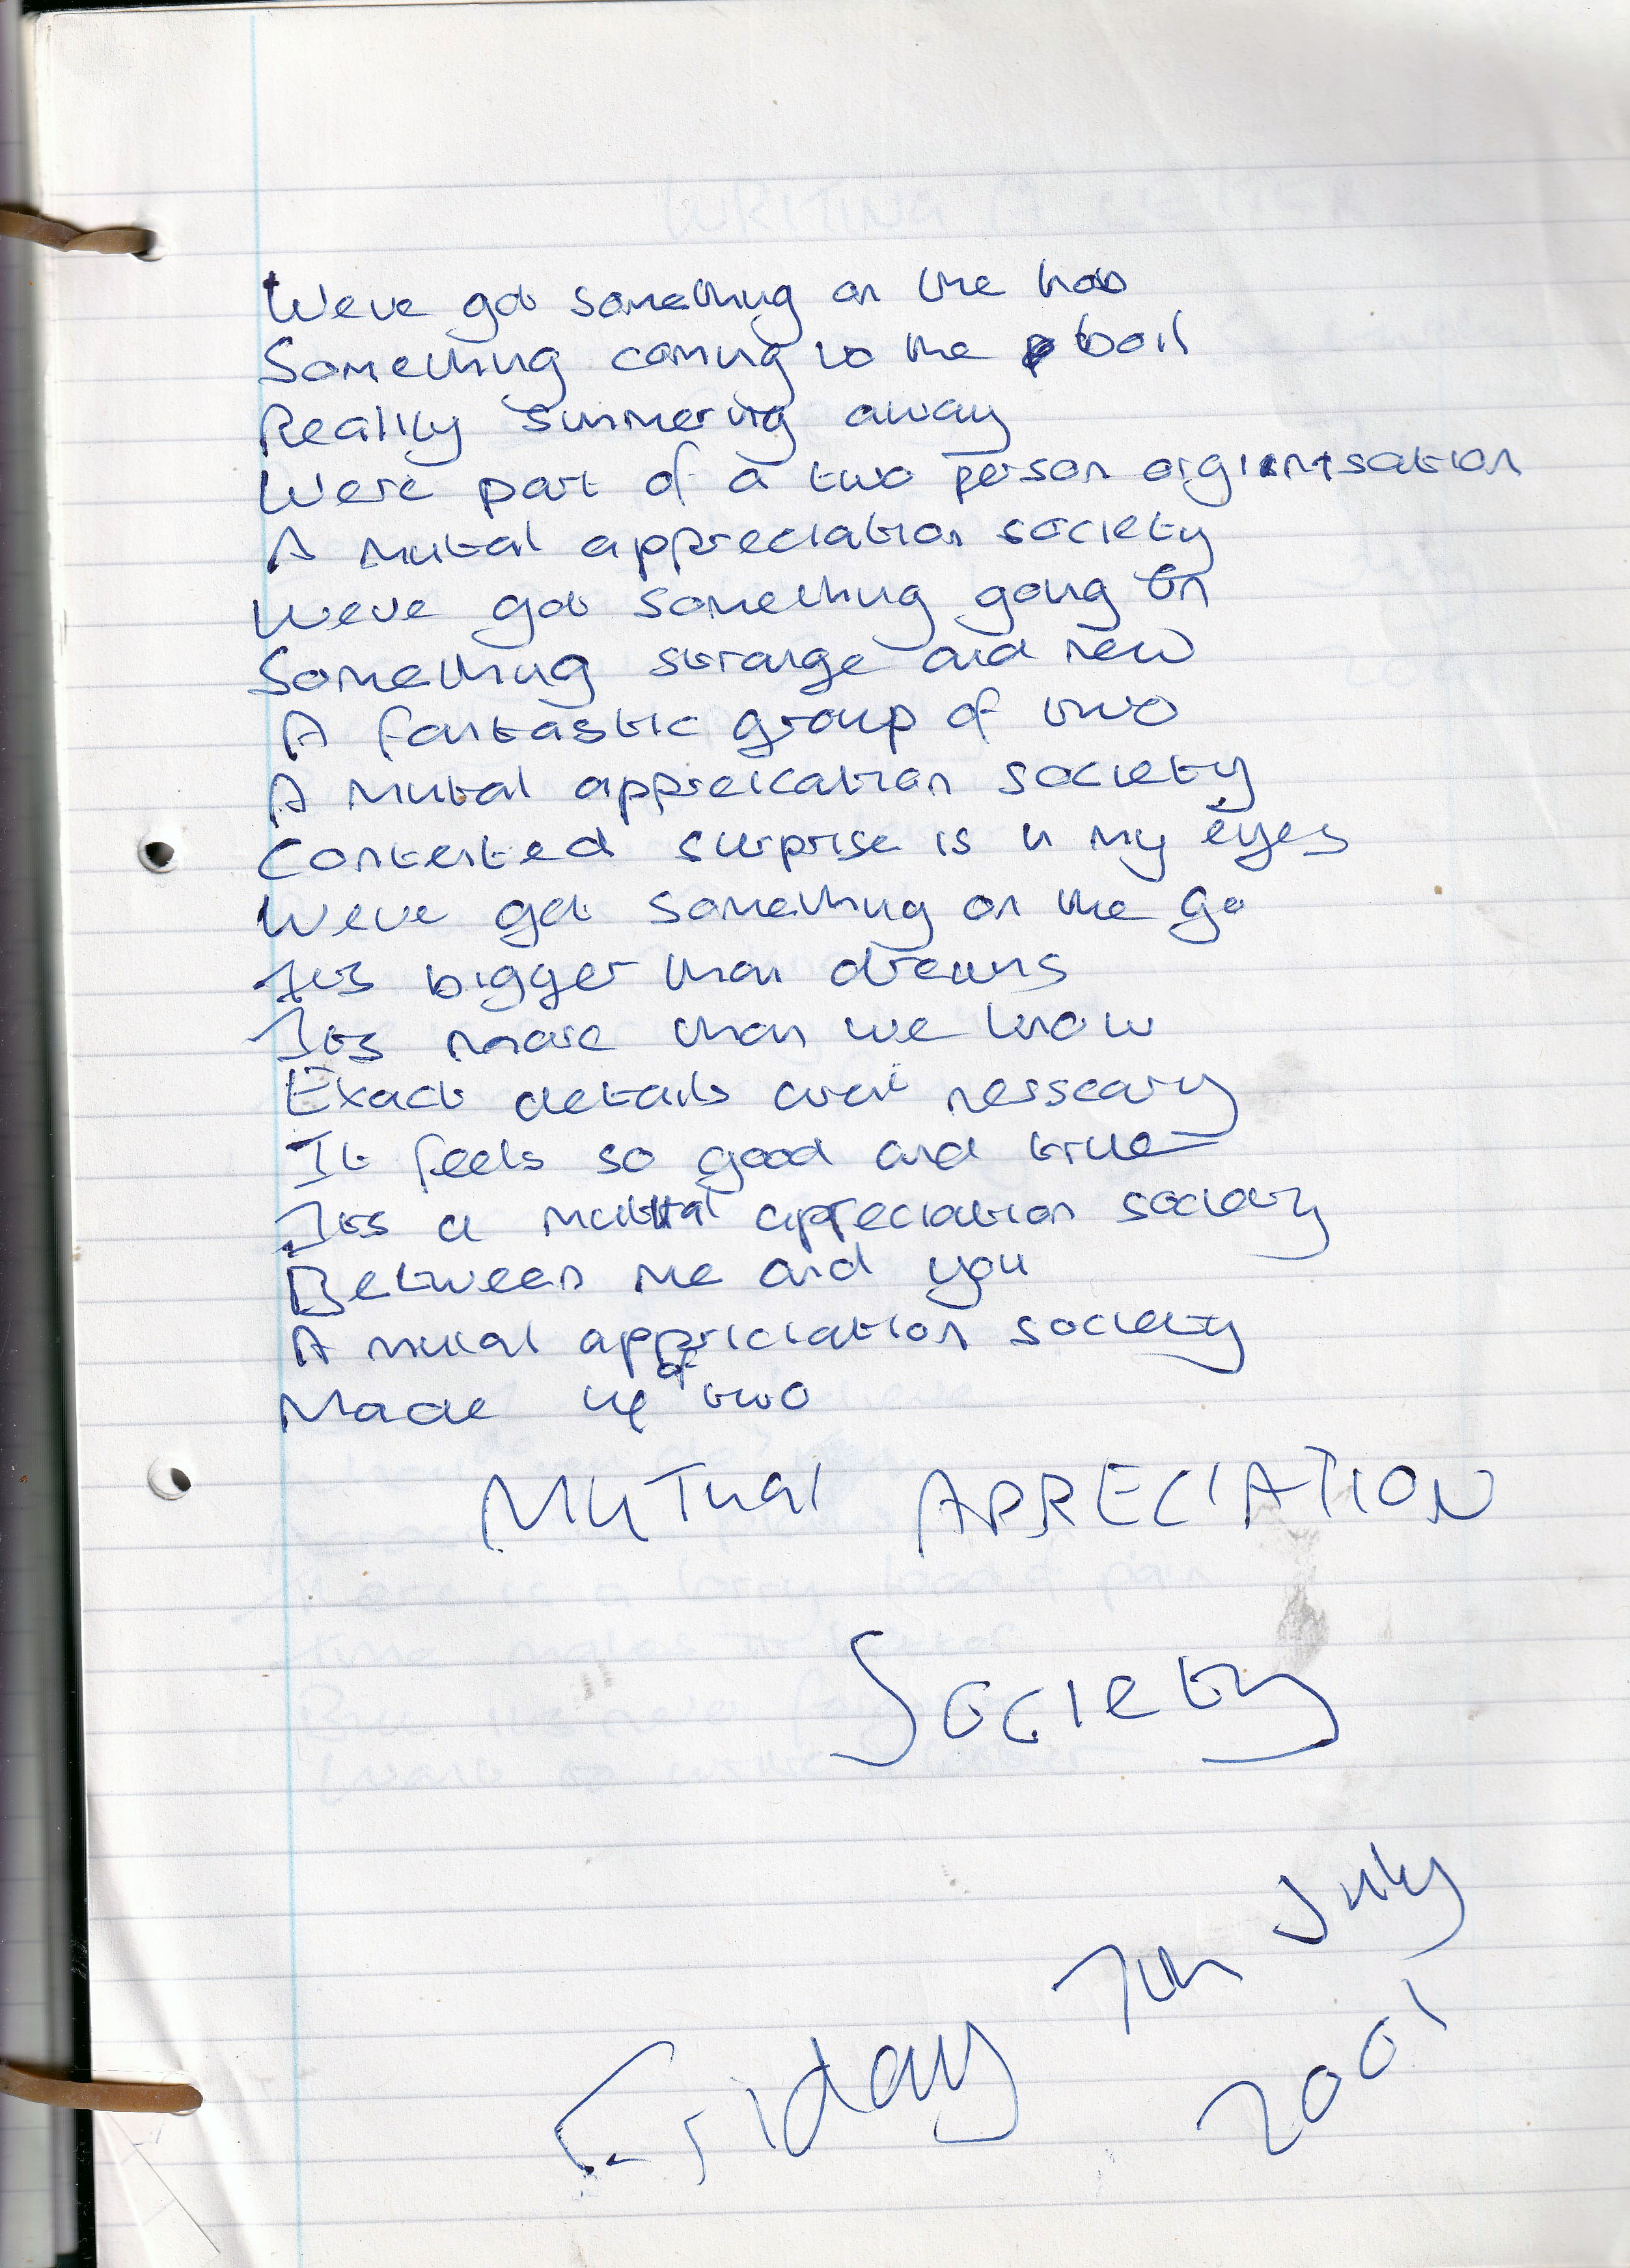 Weve got something on the hob
Something coming to the boil
Reality simmering away
Were part of a two person orginisation
A mutal appreciation society
Weve got something going on
Something strange and new
A fantastic group of two
A mutal appreication society
Contented surprise is in my eyes
Weve got something on the go
Its bigger than dreams
Its more than we know
Exact details arent nessceary
It feels so good and true
Its a mututal appreciation society
Between me and you
A mutal appriciation society
Made up of two
MUTual APPRECIATION
Society
Friday 7th July
2001